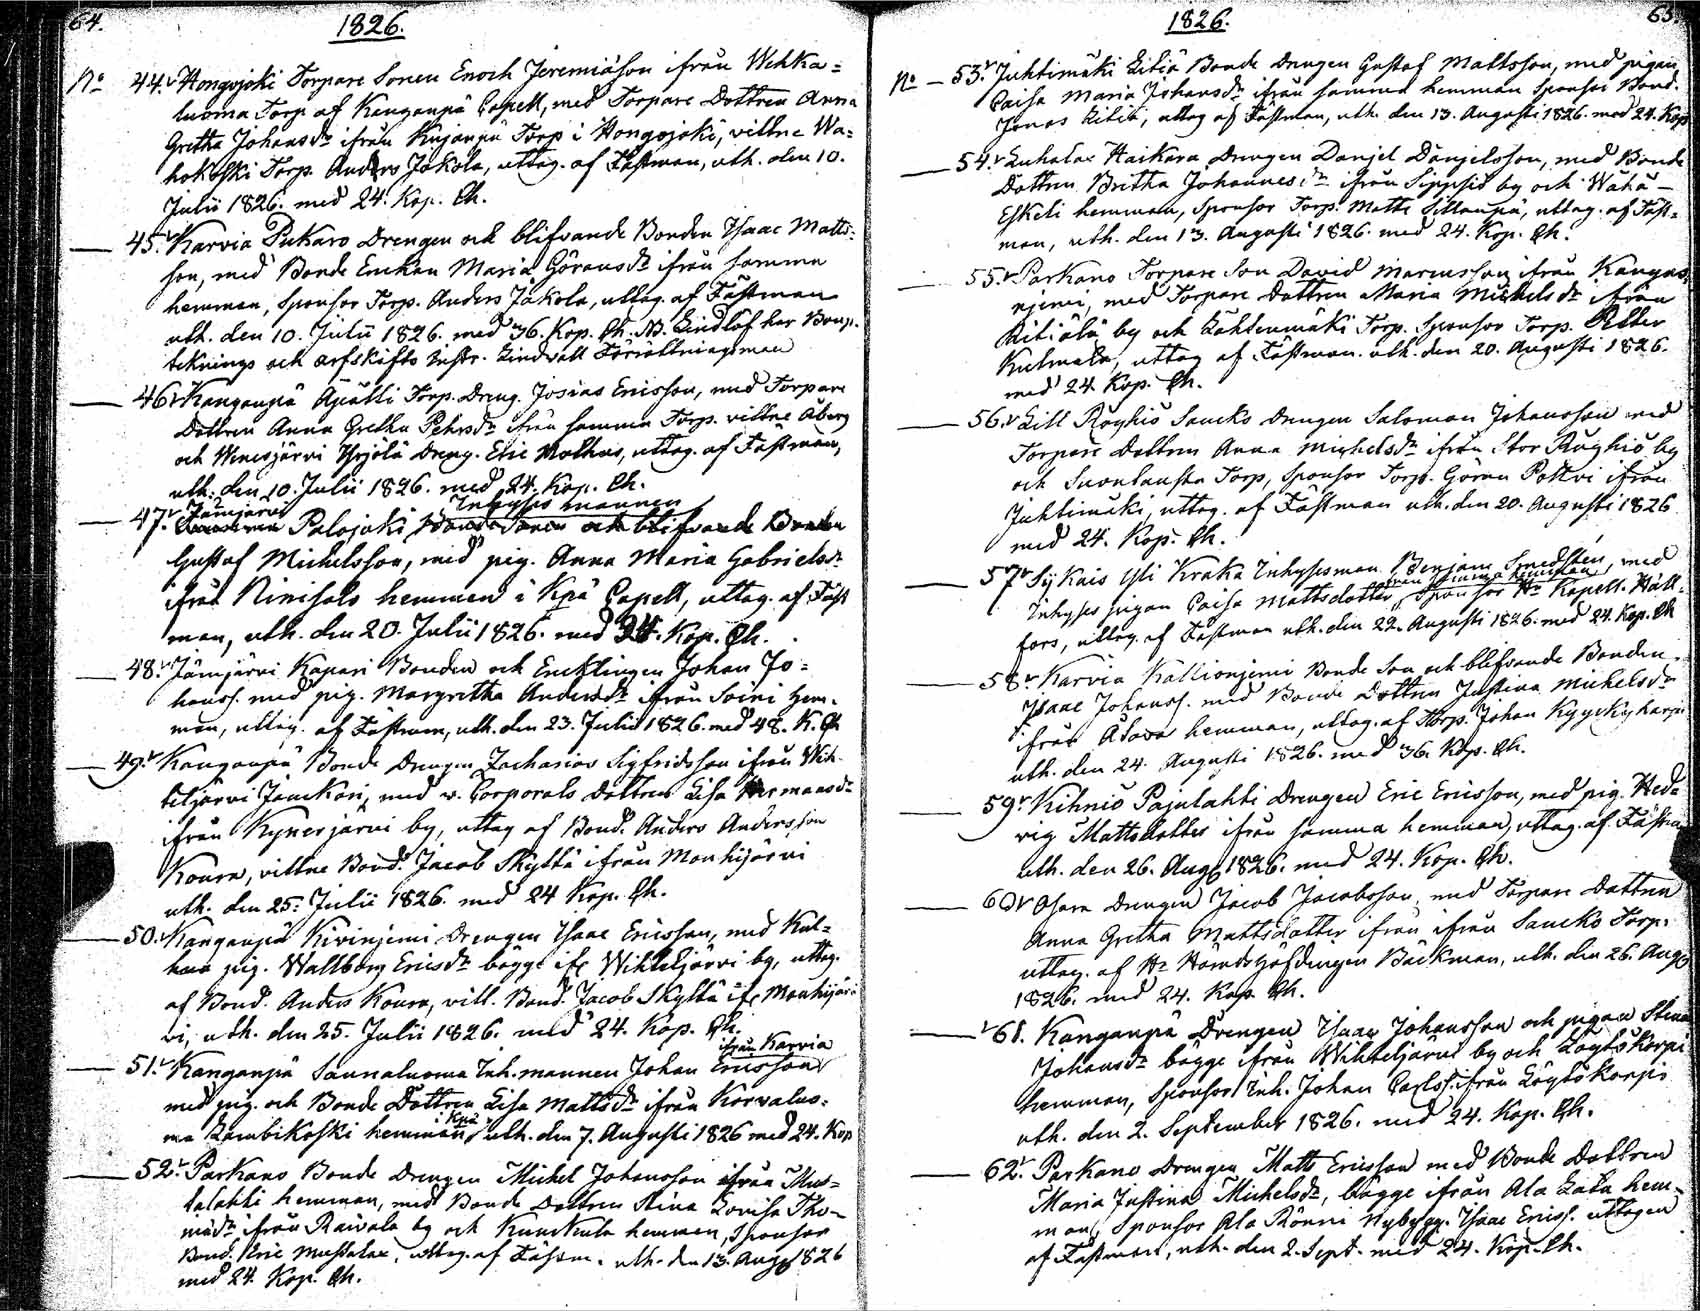 64.
1826.
No 44. Hongojoki Torpare Sonen Enoch Jeremiäson ifrån Wehka=
luoma Torp af Kanganpä Capell, med Torpare Dottren Anna
Gretha Johansdr ifrån Kujanpä Torp i Hongojoki, vittne Wa=
hokoski Torp. Anders Jakola, uttag. af Fästman, uth. den 10.
Julii 1826. med 24. Kop. Ch.
45. Karvia Pukaro Drengen och blifvande Bonden Isaac Matts=
son, med Bonde Enckan Maria Göransdr ifrån samma
hemman, Sponsor Torp. Anders Jakola, uttag. af Fästman
uth. den 10. Julii 1826. med 36. Kop. Ch. NB. Lindlöf har Boup.
teknings och arfskifts Instr. Lindvall Förrättningsman
46. Kanganpä Äjätti Torp. Dreng. Josias Ericsson, med Torpare
Dottren Anna Gretha Pehrsdr ifrån samma Torp. vittne Åberg
och Wenesjärvi Yrjölä Dreng. Eric Molhus, uttag. af Fästman,
uth. den 10. Julii 1826. med 24. Kop. Ch.
Jämjärvi Inhyses mannen
47. Palojoki Bonde Sonen och blifvande Bonden
Gustaf Michelsson, med pig. Anna Maria Gabrielsdr
ifrån Ninisalo hemman i Kpä Capell, uttag. af Fäst
man, uth. den 20. Julii 1826. med 24. Kop. Ch.
48. Jämjärvi Kapari Bonden och Encklingen Johan Jo=
hanss. med pig. Margretha Andersdr ifrån Soini hem=
man, uttag. af Fästman, uth. den 23. Julii 1826. med 48. K. Ch
49. Kanganpä Bonde Drengen Zacharias Sigfridsson ifrån Wih=
teljärvi Janckari, med v. Corporals Dottren Lisa Hermansdr
ifrån Kynerjärvi by, uttag af Bond. Anders Andersson
Koura, vittne Bond. Jacob Skyttä ifrån Mouhijärvi
uth. den 25. Julii 1826. med 24 Kop. Ch.
50. Kanganpä Kivinjemi Drengen Isaac Ericsson, med
pig. Wallborg Ericsdr bägge ifr Wihteljärvi by, uttag.
af Bond. Anders Koura, vitt. Bond. Jacob Skyttä ifr Mouhijär=
vi, uth. den 25. Julii 1826. med 24. Kop. Ch.
ifrån Karvia
51. Kanganpä Saunaluoma Inh. mannen Johan Ericsson
med pig. och Bonde Dottren Lisa Mattsdr ifrån Korvaluo=
ma Lambikoski hemman i Kpä uth. den 7. Augusti 1826 med 24. Kop
52. Parkano Bonde Drengen Michel Johansson ifrån Mus=
talahti hemman, med Bonde Dottren Stina Lovisa Tho=
mædr ifrån Raivala by och hemman, Sponsor
Bond. Eric Mustalax, uttag. af Fästm. uth. den 13. Aug 1826
med 24. Kop. Ch.
65.
1826.
No 53. Juhtimäki Kitiä Bonde Drengen Gustaf Mattsson, med pigan
Caisa Maria Johansdr ifrån samma hemman Sponsor Bond.
Jonas Kitiä, uttag af Fästman, uth. den 13. Augusti 1826. med 24. Kop
54. Luhalax Haikara Drengen Danjel Danjelsson, med Bonde
Dottren Britha Johannesdr ifrån Sippsiö by och Wähä-
Eskeli hemman, Sponsor Torp. Matts Sillanpä, uttag. af Fäst=
man, uth. den 13. Augusti 1826. med 24. Kop. Ch.
55. Parkano Torpare Son David Marcusson ifrån Kangas=
njemi, med Torpare Dottren Maria Michelsdr ifrån
Kitiälä by och Lähtenmäki Torp. Sponsor Torp. Petter
Kulmala, uttag af Fästman. uth. den 20. Augusti 1826.
med 24. Kop. Ch.
56. Lill Röyhiö Saucko Drengen Salomon Johansson med
Torpare Dottren Anna Michelsdr ifrån Stor Röyhiö by
och Torp, Sponsor Torp. Göran Poltvi ifrån
Juhtimäki, uttag. af Fästman uth. den 20. Augusti 1826
med 24. Kop. Ch.
57. Sykais Yli Kraka Inhysesman Benjam. Smedsten, med
Inhyses pigan Caisa Mattsdotter, ifrån samma hemman, Sponsor Hr Kapell. Häll=
fors, uttag. af Fästman uth. den 22. Augusti 1826. med 24. Kop. Ch
58. Karvia Kallionjemi Bonde Son och blifvande Bonden
Isaac Johanss. med Bonde Dottren Justina Michelsdr
ifrån Alava hemman, uttag. af Torp. Johan Kyyckyharju
uth. den 24. Augusti 1826. med 36. Kop. Ch.
59. Kihniö Pajulahti Drengen Eric Ericsson, med pig. Hed=
vig Mattsdotter ifrån samma hemman, uttag. af Fästman
uth. den 26. Aug 1826. med 24. Kop. Ch.
60. Drengen Jacob Jacobsson, med Torpare Dottren
Anna Gretha Mattsdotter ifrån ifrån Saucko Torp.
uttag. af Hr Häradshöfdingen Bäckman, uth. den 26. Aug
1826. med 24. Kop. Ch.
61. Kanganpä Drengen Isaac Johansson och pigan Stina
Johansdr bägge ifrån Wihteljärvi by och Löytöskorpi
hemman, Sponsor Inh. Johan Carlss. ifrån Löytöskorpi
uth. den 2. September 1826. med 24. Kop. Ch.
62. Parkano Drengen Matts Ericsson med Bonde Dottren
Maria Justina Michelsdr, bägge ifrån Ala hem=
man, Sponsor Ala Rönni Nybygg. Isaac Ericss. uttagen
af Fästman, uth. den 2. Sept. med 24. Kop. Ch.